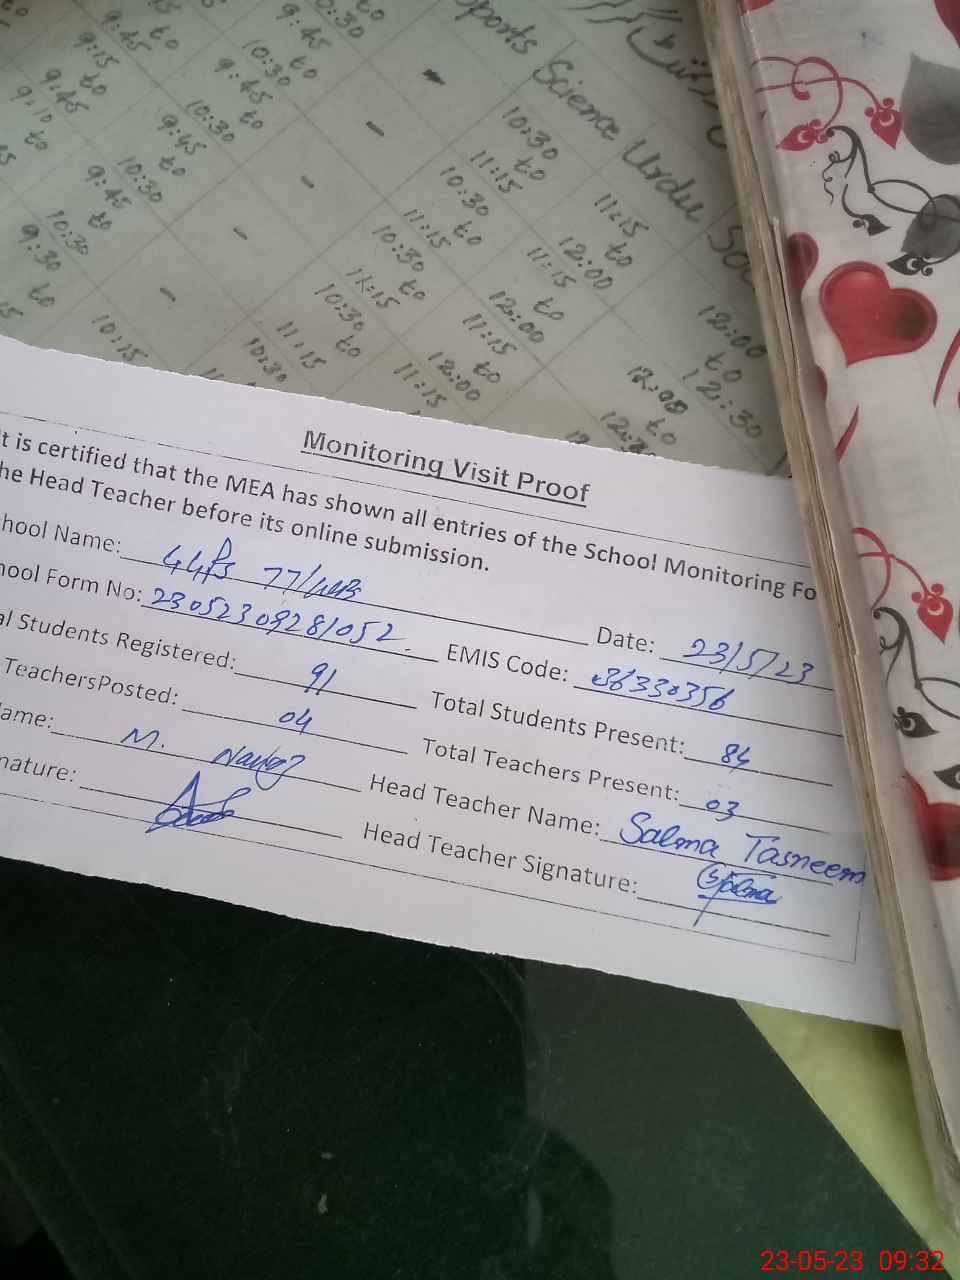 9:45
to
10:30
9:45
to
10:30
9:45
to
10:30
9:45
to
10:30
9:15
to
9:45
9:10
to
9:45
10:30
9:30
to
10:15
-
-
-
-
-
Sports
Science
Urdu
10:30
to
11:15
10:30
to
11:15
10:30
to
11:15
10:30
to
11:15
10:30
11:15
to
12:00
11:15
to
12:00
11:15
to
12:00
11:15
12:00
to
12:30
12:00
to
12:30
Monitoring Visit Proof
It is certified that the MEA has shown all entries of the School Monitoring Fo
he Head Teacher before its online submission.
chool Name: 77/ Date: 23/5/23
hool Form No: 23052309281052 EMIS Code: 36330356
al Students Registered: 91 Total Students Present: 84
TeachersPosted: 04 Total Teachers Present: 03
Name: M. Head Teacher Name: Salma Tasneem
nature: Head Teacher Signature: Salma
23-05-23 09:32